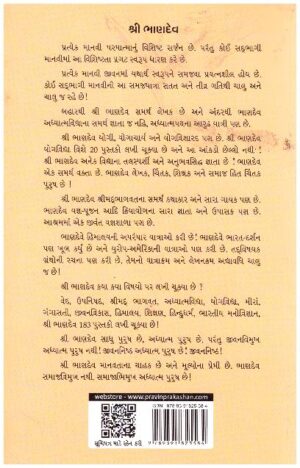 શ્રી ભાણદેવ
પ્રત્યેક માનવી પરમાત્માનું વિશિષ્ટ સર્જન છે. પરંતુ કોઈ સદ્‌ભાગી
માનવીમાં આ વિશિષ્ટતા પ્રગટ સ્વરૂપ ધારણ કરે છે.
પ્રત્યેક માનવી જીવનમાં યથાર્થ સ્વરૂપને સમજવા પ્રયત્નશીલ હોય છે.
કોઈ સદ્‌ભાગી માનવીની આ સમજયાત્રા સતત અને તીવ્ર ગતિથી ચાલુ અને
ચાલુ જ રહે છે!
બહારથી શ્રી ભાણદેવ સમર્થ લેખક છે અને અંદરથી ભાણદેવ
અધ્યાત્મવિદ્યાના સમર્થ જ્ઞાતા જ નહિ, અધ્યાત્મપથના આરૂઢ યાત્રી પણ છે.
શ્રી ભાણદેવ યોગી, યોગાચાર્ય અને યોગવિશારદ પણ છે. શ્રી ભાણદેવ
યોગવિદ્યા વિશે 20 પુસ્તકો લખી ચૂક્યા છે અને આ આંકડો છેલ્લો નથી!
શ્રી ભાણદેવ અનેક વિદ્યાના તલસ્પર્શી અને અનુભવસિદ્ધ જ્ઞાતા છે! ભાણદેવ
એક સમર્થ વક્તા છે. ભાણદેવ લેખક, ચિંતક, શિક્ષક અને સમાજ હિત ચિંતક
પુરુષ છે!
શ્રી ભાણદેવ શ્રીમદ્‌ભાગવતના સમર્થ કથાકાર અને સારા ગાયક પણ છે.
ભાણદેવ યજ્ઞ-પૂજન આદિ ક્રિયાયોગના સારા જ્ઞાતા અને ઉપાસક પણ છે.
આશ્રમમાં એક જીવંત યજ્ઞશાળા પણ છે.
ભાણદેવે હિમાલયની અપરંપાર યાત્રાઓ કરી છે! ભાણદેવે ભારત-દર્શન
પણ ખૂબ કર્યું છે અને યુરોપ-અમેરિકાની યાત્રાઓ પણ કરી છે. તદ્‌વિષયક
ગ્રંથોની રચના પણ કરી છે. તેમના યાત્રાક્રમ અને લેખનક્રમ અદ્યાવધિ ચાલુ
જ છે!
શ્રી ભાણદેવ કયા કયા વિષયો પર લખી ચૂક્યા છે?
વેદ, ઉપનિષદ, શ્રીમદ્ ભાગવત, અધ્યાત્મવિદ્યા, યોગવિદ્યા, મીરાં,
ગંગાસતી, જીવનવિકાસ, હિમાલય, શિક્ષણ, હિન્દુધર્મ, ભારતીય મનોવિજ્ઞાન,
શ્રી ભાણદેવ 183 પુસ્તકો લખી ચૂક્યા છે!
શ્રી ભાણદેવ સાધુ પુરુષ છે, અધ્યાત્મ પુરુષ છે, પરંતુ જીવનવિમુખ
અધ્યાત્મ પુરુષ નથી! જીવનનિષ્ઠ અધ્યાત્મ પુરુષ છે! જીવનનિષ્ઠ!
શ્રી ભાણદેવ માનવતાના ચાહક છે અને મૂલ્યોના પ્રેમી છે. ભાણદેવ
સમાજવિમુખ નથી. સમાજાભિમુખ અધ્યાત્મ પુરુષ છે!
webstore - www.pravinprakashan.com
સૂચિપત્ર માટે સ્કેન કરો